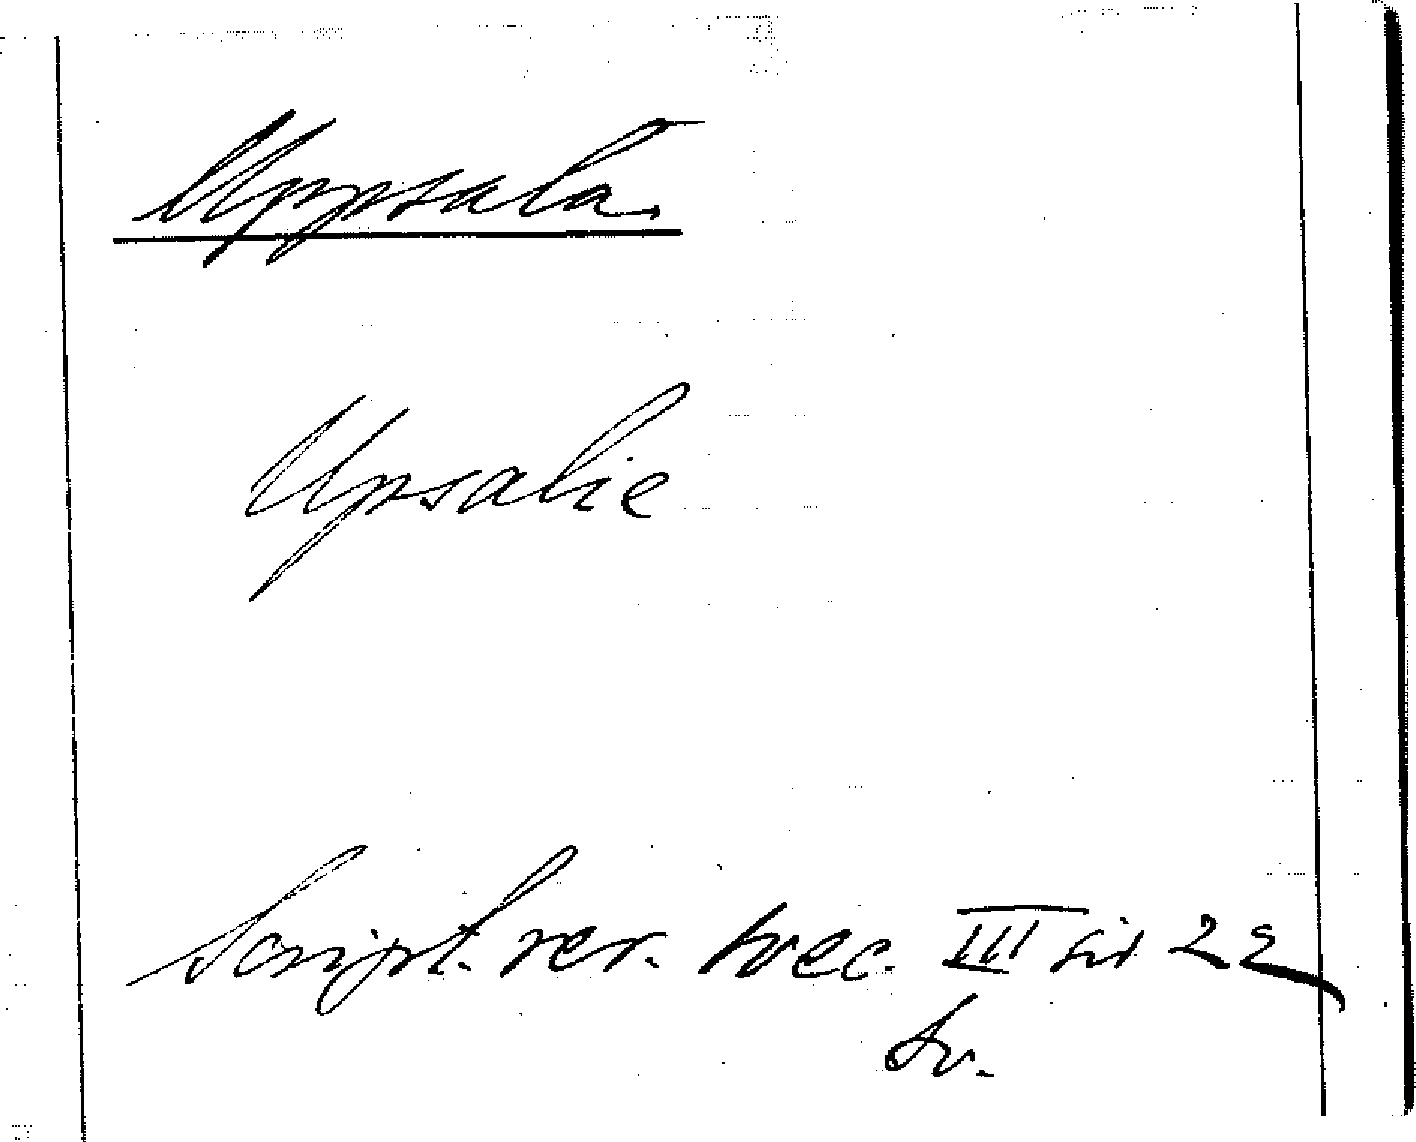 Uppsala.
Upsalie
Script. rer. svec. III sid 22
Sv.